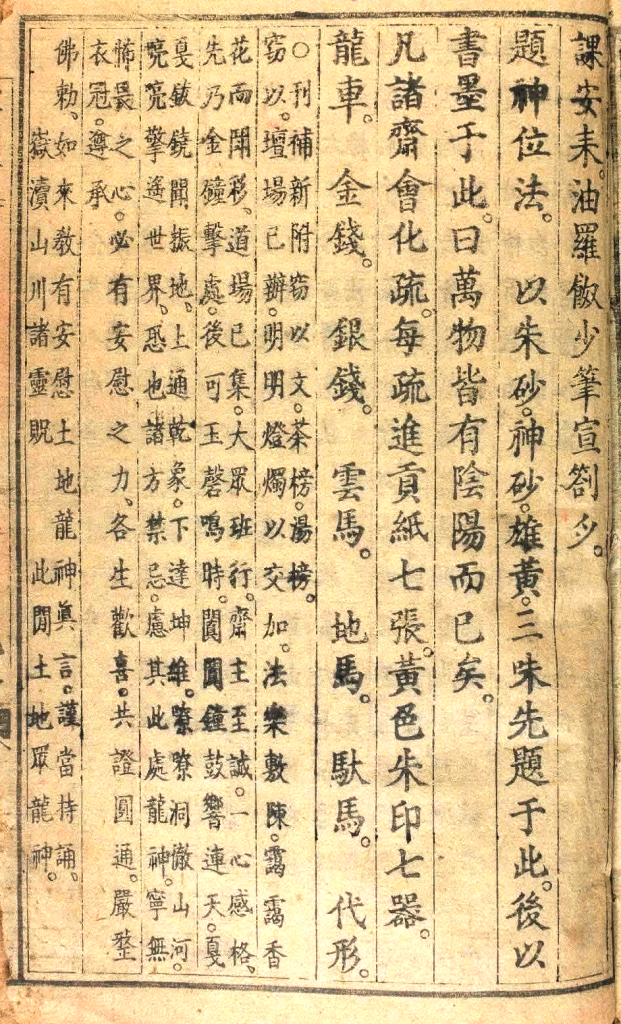 課安耒。油羅飯少筆宣劄夕。
題神位法。　以朱砂。神砂。雄黃。三味先題于此。後以
書墨于此。曰萬物皆有陰陽而已矣。
凡諸齋會化疏。每疏進貢紙七張。黃色朱印七器。
龍車。　金錢。　銀錢。　雲馬。　地馬。　馱馬。　代形。
○刊補新附　窃以文。茶榜。湯榜。
窃以。壇場已辦。明明燈燭以交加。法樂敷陳。靄靄香
花而開移。道場已集。大眾班行。齋主至誠。一心感格、
先乃金鐘擊處。後可玉磬鳴時。闐闐鐘鼓響連天。戛
戛鈸鐃聞振地。上通乾象。下達坤維。嘹嘹洞徹山河。
喨喨擎遙世界、恐也諸方禁忌。慮其此處龍神。寧無
怖畏之心。必有安慰之力、各生歡喜。共證圓通。嚴整
衣冠。遵承
佛勅、如來教有安慰土地龍神眞言。謹當持誦、
嶽瀆山川諸靈貺　此閒土地眾龍神。